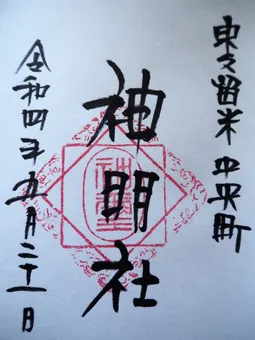 東久留米 中央町
神明社
令和四年五月二十一日